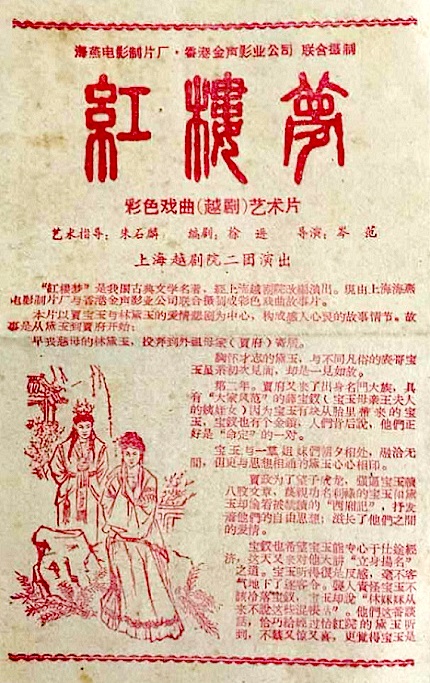 海燕电影制片厂·香港金声影业公司 联合摄制
紅樓夢
彩色戏曲(越剧)艺术片
艺术指导：朱石麟 編剧：徐进 导演：岑范
上海越剧院二团演出
“紅楼梦”是我国古典文学名著，經上海越剧院改編演出。現由上海海燕
电影制片厂与香港金声影业公司联合摄制成彩色戏曲故事片。
本片以賈宝玉与林黛玉的爱情悲剧为中心，构成感人心肺的故事情节。故
事是从黛玉到賈府开始：
早丧慈母的林黛玉，投奔到外祖母家（賈府）寄居。
胸怀才志的黛玉，与不同凡俗的表哥宝
玉虽系初次見面，却是一見如故。
第二年。賈府又来了出身名門大族，具
有“大家风范”的薛宝釵（宝玉母亲王夫人
的姨姪女）因为宝玉有块从胎里带来的宝
玉，宝釵也有个金鎖，人們背后說，他們正
好是“命定”的一对。
宝玉与一羣姐妹們朝夕相处，融洽无
間，但更与思想相通的黛玉心心相印。
賈政为了望子成龙，强逼宝玉讀
八股文章，蔑視功名利祿的宝玉和黛
玉却偷看被禁讀的“西廂記”，抒发
着他們的自由思想，滋长了他們之間
的爱情。
宝釵也希望宝玉能专心于仕途經
济，这天又来对他大講“立身揚名”
之道。宝玉听得很是反感，毫不客
气地下了逐客令。襲人責怪宝玉不
該冷落宝釵，宝玉却說“林妹妹从
来不說这些混帳話”。他們这番談
話，恰巧給經过怡紅院的黛玉听
到，不禁又惊又喜，更觉得宝玉是